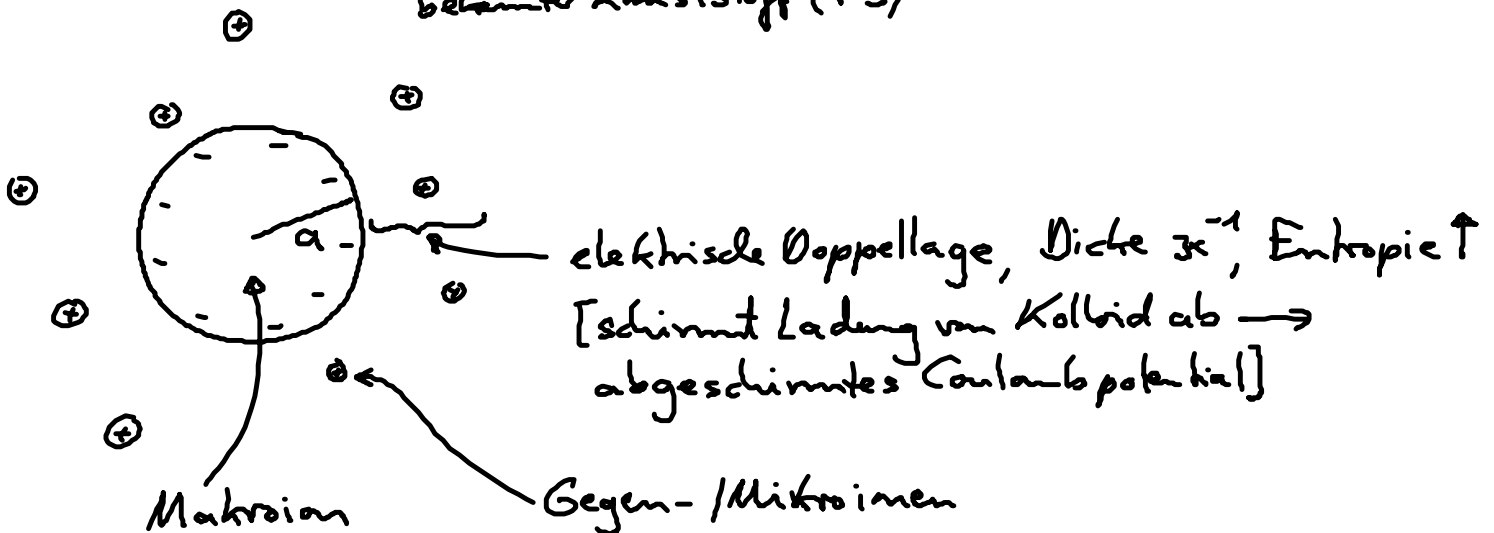 bekannter Kunststoff (PS)
a
elektrische Doppellage, Dicke ϰ⁻¹, Entropie ↑
[schirmt Ladung vom Kolloid ab →
abgeschirmtes Coulombpotential]
Makroion
Gegen-/Mikroionen